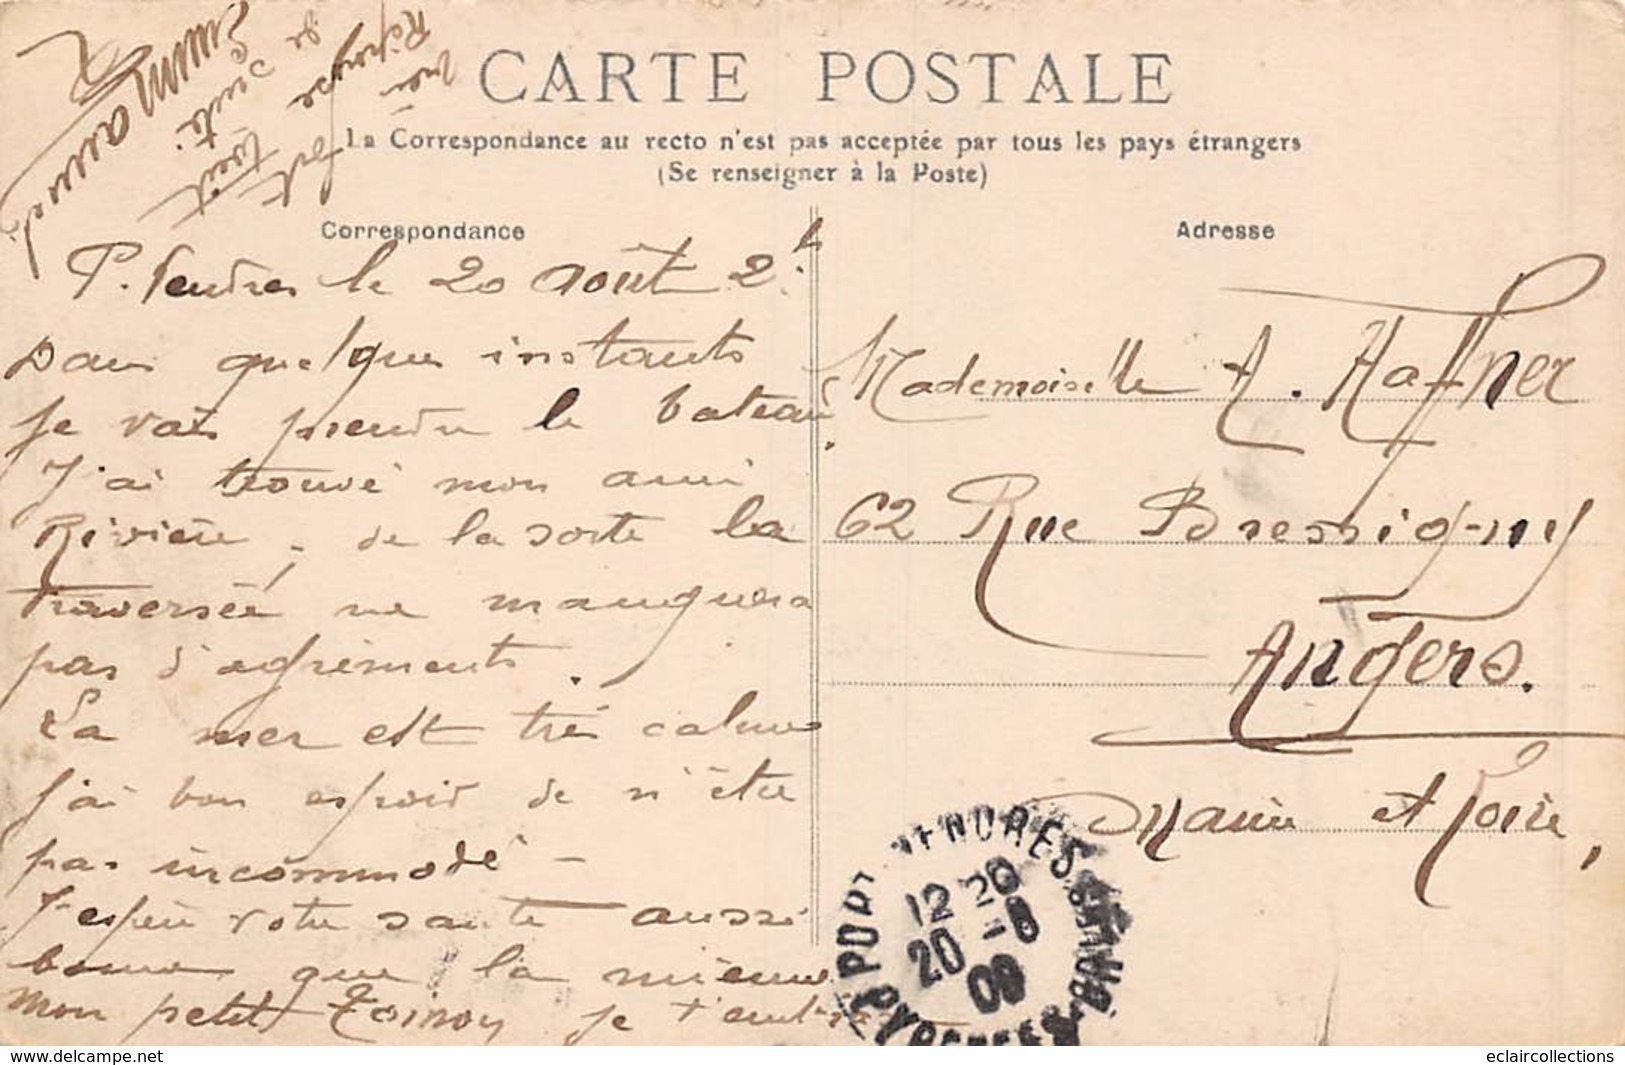 CARTE POSTALE
La Correspondance au recto n'est pas acceptée par tous les pays étrangers
(Se renseigner à la Poste)
Correspondance
Adresse
P. Vendres le 20 Août 2h
Dans quelques instants
je vais prendre le bateau.
J'ai trouvé mon ami
Rivière, de la sorte la
traversée ne manquera
pas d'agréments.
La mer est très calme
j'ai bon espoir de n'être
pas incommodé -
J'espère votre santé aussi
bonne que la mienne
mon petit Toinon je t'
Mademoiselle A. Haffner
62 Rue Bressigny
Angers.
Maine et Loire,
PORT VENDRES
12 20
20 -8
09
eclaircollections.delcampe.net
eclaircollections